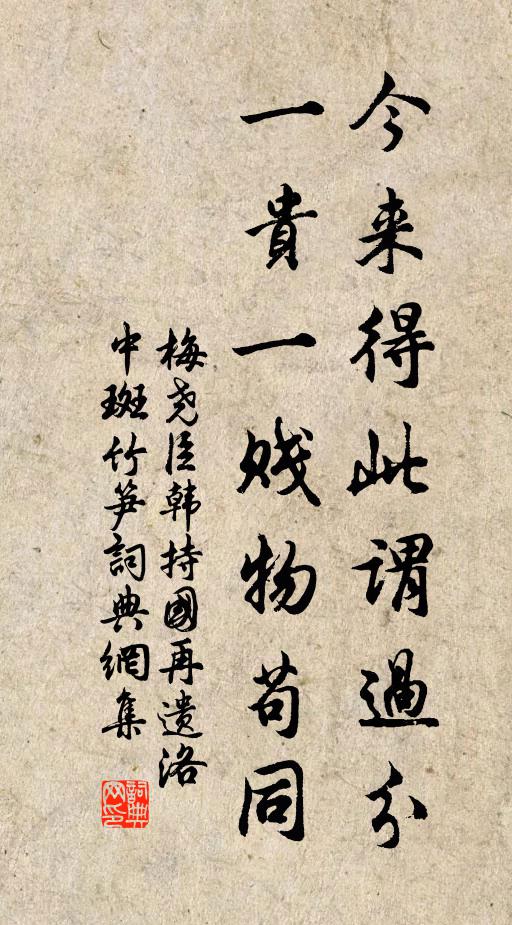 今来得此謂過分
一貴一贱物苟同
梅尧臣韩持國再遗洛
中斑竹笋詞典網集
詞典网印